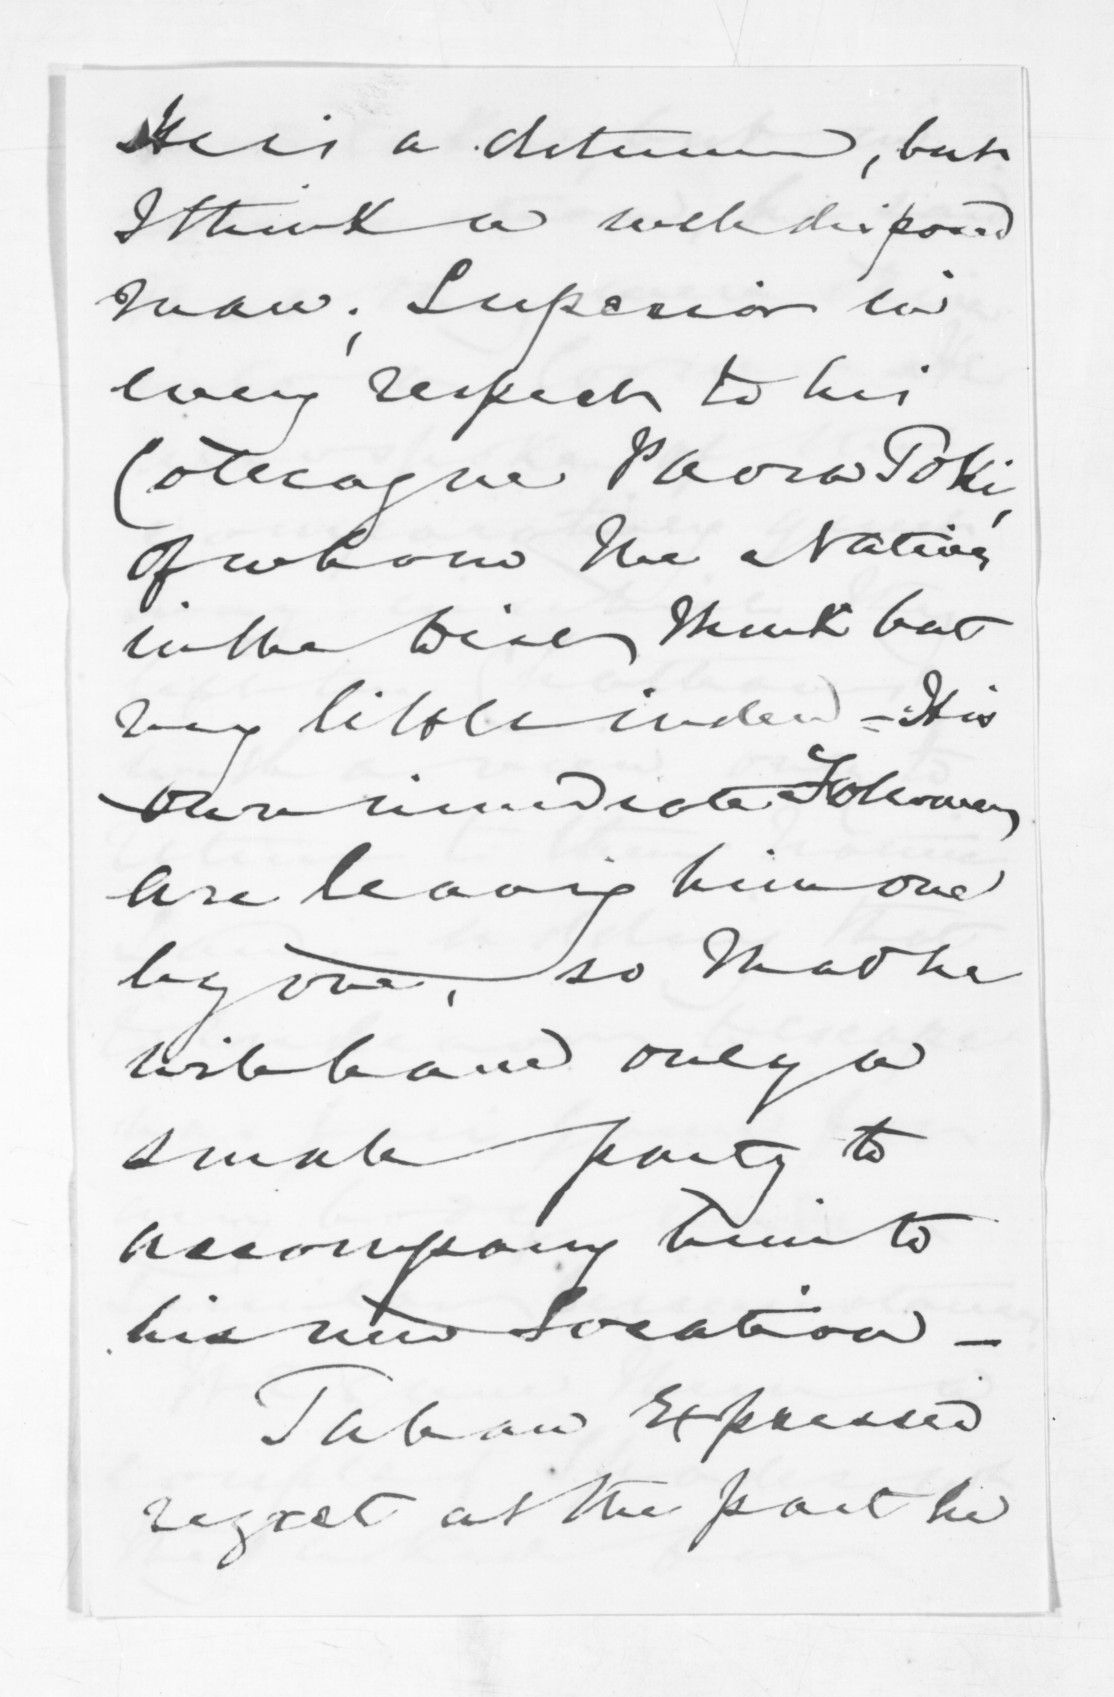 He is a determined, but
I think a well disposed
man; Superior in
every respect to his
Coleague Paora Toki,
of whom the Natives
in the       think but
very little indeed - His
own immediate Followers
are leaving him one
by one, so that he
will have only a
small party to
accompany him to
his new Location -
Tahau Expressed
regret at the part he